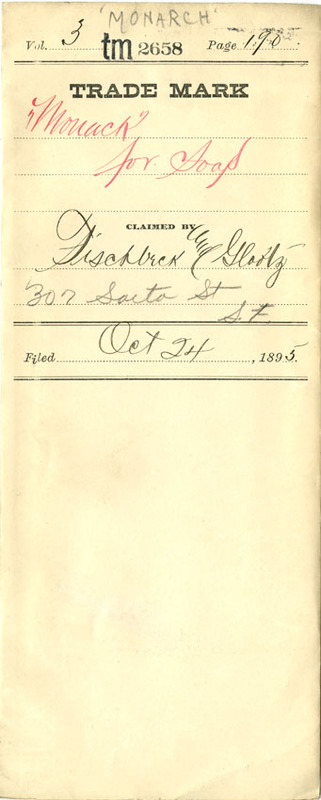 'MONARCH'
Vol. 3 tm 2658 Page 190
TRADE MARK
"Monack"
for Soap
CLAIMED BY
Fischbeck & Glootz
307 Sacto St
S.F.
Filed Oct 24, 1895.